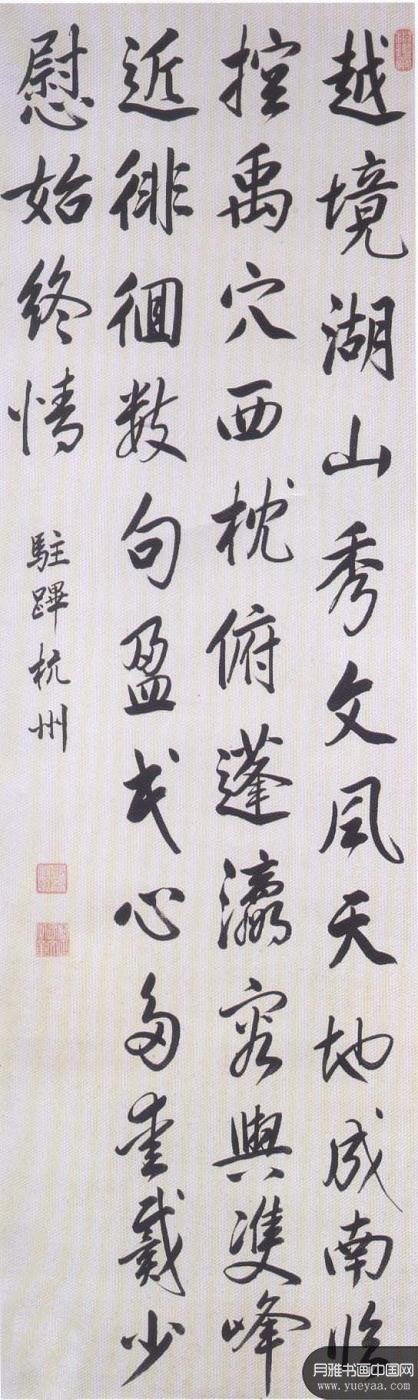 越境湖山秀文風天地成南臨
控禹穴西枕俯蓬瀛容與雙峰
近徘徊數句盈我心多愛戴少
慰始終情
駐蹕杭州
月雅书画中国网
www.yueyaa.com